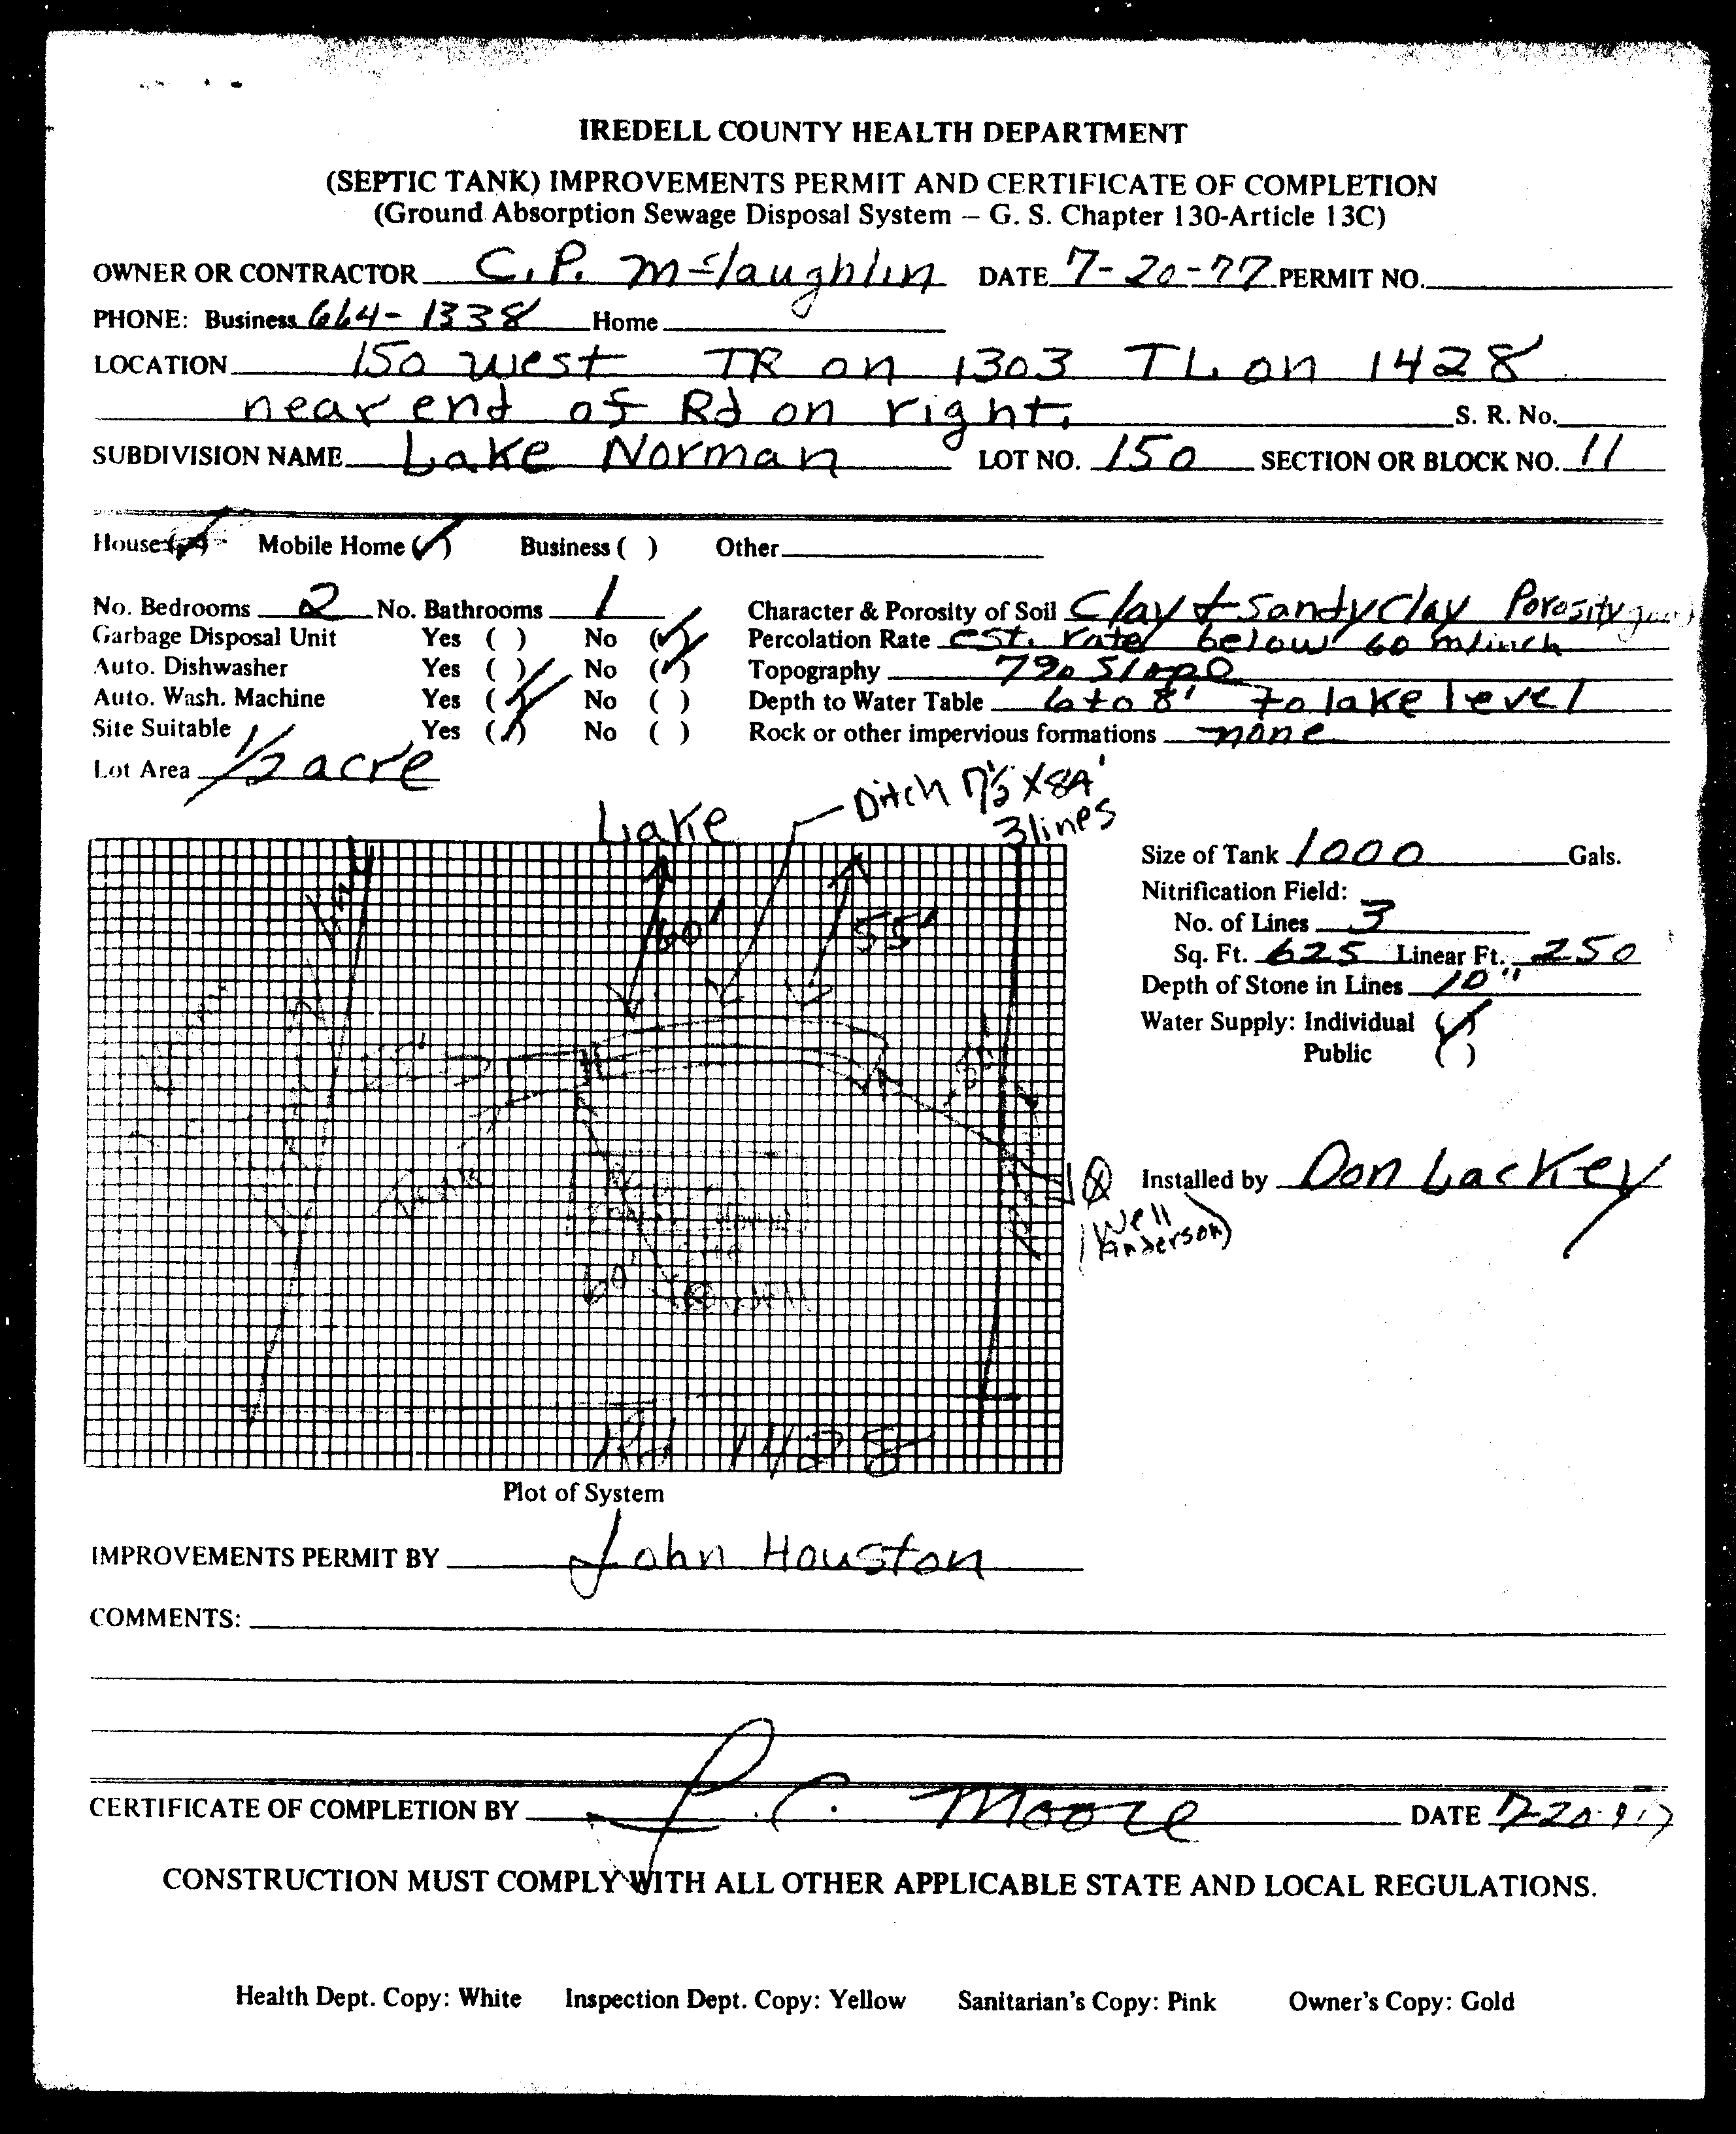 IREDELL COUNTY HEALTH DEPARTMENT
(SEPTIC TANK) IMPROVEMENTS PERMIT AND CERTIFICATE OF COMPLETION
(Ground Absorption Sewage Disposal System – G. S. Chapter 130-Article 13C)
OWNER OR CONTRACTOR C.P. McLaughlin DATE 7-20-77 PERMIT NO.
PHONE: Business 664-1338 Home
LOCATION 150 West TR on 1303 TL on 1428
near end of Rd on right. S. R. No.
SUBDIVISION NAME Lake Norman LOT NO. 150 SECTION OR BLOCK NO. 11
House Mobile Home (✓) Business ( ) Other
No. Bedrooms 2 No. Bathrooms 1 Character & Porosity of Soil Clay + Sandy Clay Porosity
Garbage Disposal Unit Yes ( ) No (✓) Percolation Rate est. rate below 60 m/inch
Auto. Dishwasher Yes ( ) No (✓) Topography 7% Slope
Auto. Wash. Machine Yes (✓) No ( ) Depth to Water Table 6 to 8' to lake level
Site Suitable Yes (✓) No ( ) Rock or other impervious formations none
Lot Area 1/2 acre
Lake
Ditch
3 lines
60'
55'
Size of Tank 1000 Gals.
Nitrification Field:
No. of Lines 3
Sq. Ft. 625 Linear Ft. 250
Depth of Stone in Lines 10"
Water Supply: Individual (✓)
Public ( )
Installed by Don Lackey
(Well
Anderson)
60'
Rd 1428
Plot of System
IMPROVEMENTS PERMIT BY John Houston
COMMENTS:
CERTIFICATE OF COMPLETION BY C. Moore DATE
CONSTRUCTION MUST COMPLY WITH ALL OTHER APPLICABLE STATE AND LOCAL REGULATIONS.
Health Dept. Copy: White Inspection Dept. Copy: Yellow Sanitarian's Copy: Pink Owner's Copy: Gold